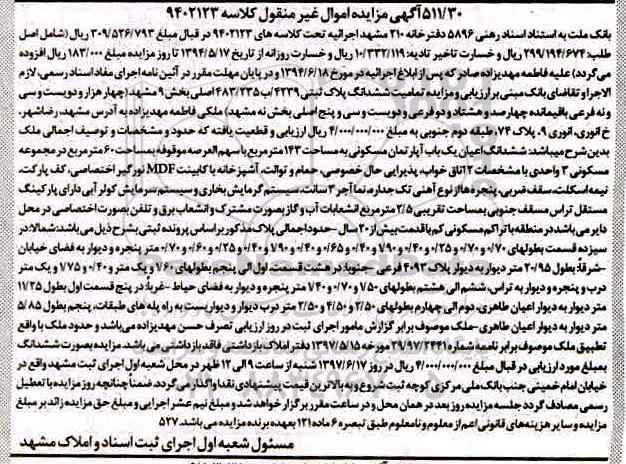 ۵۱۱/۳۰ آگهی مزایده اموال غیر منقول کلاسه ۹۴۰۲۱۲۳
بانک ملت به استناد اسناد رهنی ۵۸۹۶ دفترخانه ۲۱۰ مشهد اجرائیه تحت کلاسه های ۹۴۰۲۱۲۳ در قبال مبلغ ۳۰۹/۵۲۶/۷۹۳ ریال (شامل اصل
طلب: ۲۹۹/۱۹۴/۶۷۴ ریال و خسارت تاخیر تادیه: ۱۰/۳۳۲/۱۱۹ ریال و خسارت روزانه از تاریخ ۱۳۹۴/۵/۱۷ تا روز مزایده مبلغ ۱۸۳/۰۰۰ ریال افزوده
می گردد) علیه فاطمه مهدیزاده صادر که پس از ابلاغ اجرائیه در مورخ ۱۳۹۴/۶/۱۸ و در پایان مهلت مقرر در آئین نامه اجرای مفاد اسناد رسمی، لازم
الاجرا و تقاضای بانک مبنی بر ارزیابی و مزایده تمامیت ششدانگ پلاک ثبتی ۴۲۳۹/ب/۴۸۳/۲۳۵ اصلی بخش ۹ مشهد (چهار هزار و دویست و سی
و نه فرعی باقیمانده چهارصد و هشتاد و دو فرعی و دویست و سی و پنج اصلی بخش نه مشهد) ملکی فاطمه مهدیزاده به آدرس مشهد، رضاشهر،
خ انوری، انوری ۹، پلاک ۷۴، طبقه دوم جنوبی به مبلغ ۴/۰۰۰/۰۰۰/۰۰۰ ریال ارزیابی و قطعیت یافته که حدود و مشخصات و توصیف اجمالی ملک
بدین شرح میباشد: ششدانگ اعیان یک باب آپارتمان مسکونی به مساحت ۱۴۳ مترمربع با سهم العرصه موقوفه بمساحت ۶۰ مترمربع در مجموعه
مسکونی ۳ واحدی با مشخصات ۲ اتاق خواب، پذیرایی حال خصوصی، حمام و توالت، آشپزخانه با کابینت MDF نورگیر اختصاصی، کف پارکت،
نیمه اسکلت، سقف ضربی، پنجره ها از نوع آهنی تک جداره، نما آجر ۳ سانت، سیستم گرمایش بخاری و سیستم سرمایش کولر آبی دارای پارکینگ
مستقل تراس مسقف جنوبی بمساحت تقریبی ۲/۵ مترمربع انشعابات آب و گاز بصورت مشترک و انشعاب برق و تلفن بصورت اختصاصی در محل
دایر می باشد در منطقه با تراکم مسکونی کم با قدمت بیش از ۲۰ سال - حدود اجمالی پلاک مذکور بر اساس پرونده ثبتی بشرح ذیل می باشد: شمالا: در
سیزده قسمت بطولهای ۰/۷۰ و ۰/۷۰ و ۰/۲۵ و ۰/۴۰ و ۰/۷۹ و ۰/۴۰ و ۰/۶۵ و ۰/۴۰ و ۰/۷۹ و ۰/۴۰ و ۰/۲۵ و ۰/۶۰ و ۰/۷۰ متر پنجره و دیوار به فضای خیابان
-شرقاً: بطول ۲۰/۹۵ متر دیوار به دیوار پلاک ۴۰۹۲ فرعی -جنوبا: در هشت قسمت، اول الی پنجم بطولهای ۷/۶۰ و یک متر و ۰/۴۰ و ۷/۷۵ و یک متر
درب و پنجره و دیوار به تراس، ششم الی هشتم بطولهای ۷/۵۰ و ۰/۷۰ و ۷/۴۰ متر پنجره و دیوار به فضای حیاط -غرباً: در پنج قسمت اول بطول ۱۱/۲۵
متر دیوار به دیوار اعیان طاهری، دوم الی چهارم بطولهای ۲/۵۰ و ۴/۵۰ و ۲/۵۰ متر درب دیوار و دیواریست به راه پله های طبقات، پنجم بطول ۵/۸۵
متر به دیوار اعیان طاهری -ملک موصوف برابر گزارش مامور اجرای ثبت در روز ارزیابی تصرف حسن مهدیزاده می باشد و حدود ملک با واقع
تطبیق ملک موصوف برابر نامعه شماره ۲۹/۹۷/۲۴۴۱۰ مورخه ۱۳۹۷/۵/۱۵ دفتر املاک بازداشتی فاقد بازداشتی می باشد. مزایده بصورت ششدانگ
بمبلغ مورد ارزیابی در قبال مبلغ ۴/۰۰۰/۰۰۰/۰۰۰ ریال در روز ۱۳۹۷/۶/۱۷ شنبه از ساعت ۹ الی ۱۲ ظهر در محل شعبه اول اجرای ثبت مشهد واقع در
خیابان امام خمینی جنب بانک ملی مرکزی کوچه ثبت شروع و به بالاترین قیمت پیشنهادی نقدا واگذار می گردد. ضمناً چنانچه روز مزایده با تعطیل
رسمی مصادف گردد جلسه مزایده روز بعد در همان محل و در ساعت مقرر برگزار خواهد شد و مبلغ نیم عشر اجرایی و مبلغ حق مزایده زائد بر مبلغ
مزایده و سایر هزینه های قانونی اعم از معلوم و نامعلوم طبق تبصره ۶ ماده ۱۲۱ بعهده برنده مزایده می باشد. ۵۲۷
مسئول شعبه اول اجرای ثبت اسناد و املاک مشهد